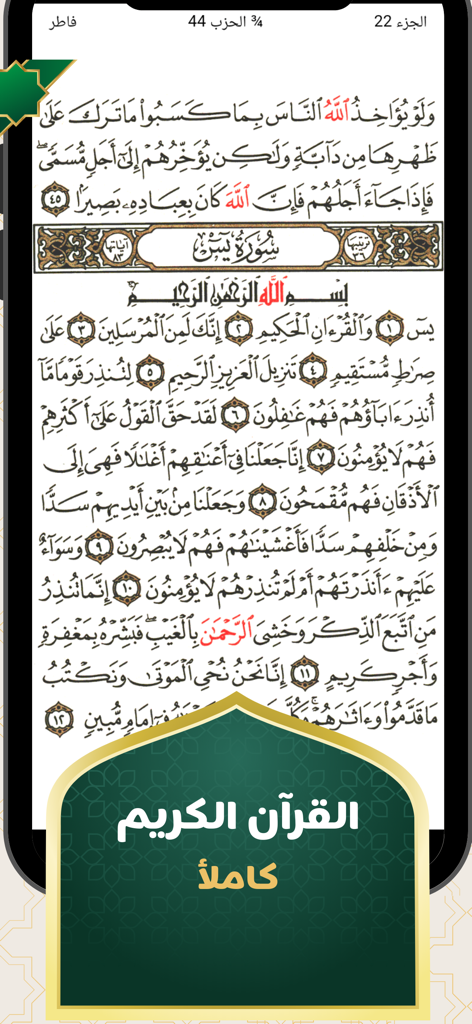 الجزء 22 ¾ الحزب 44 فاطر
وَلَوْ يُؤَاخِذُ ٱللَّهُ ٱلنَّاسَ بِمَا كَسَبُوا۟ مَا تَرَكَ عَلَىٰ
ظَهْرِهَا مِن دَآبَّةٍ وَلَـٰكِن يُؤَخِّرُهُمْ إِلَىٰٓ أَجَلٍ مُّسَمًّى ۖ
فَإِذَا جَآءَ أَجَلُهُمْ فَإِنَّ ٱللَّهَ كَانَ بِعِبَادِهِۦ بَصِيرًۢا ٤٥
ترتيبها ٣٦ سُورَةُ يسٓ آياتها ٨٣
بِسْمِ ٱللَّهِ ٱلرَّحْمَـٰنِ ٱلرَّحِيمِ
يسٓ ١ وَٱلْقُرْءَانِ ٱلْحَكِيمِ ٢ إِنَّكَ لَمِنَ ٱلْمُرْسَلِينَ ٣ عَلَىٰ
صِرَٰطٍ مُّسْتَقِيمٍ ٤ تَنزِيلَ ٱلْعَزِيزِ ٱلرَّحِيمِ ٥ لِتُنذِرَ قَوْمًا مَّآ
أُنذِرَ ءَابَآؤُهُمْ فَهُمْ غَـٰفِلُونَ ٦ لَقَدْ حَقَّ ٱلْقَوْلُ عَلَىٰٓ أَكْثَرِهِمْ
فَهُمْ لَا يُؤْمِنُونَ ٧ إِنَّا جَعَلْنَا فِىٓ أَعْنَـٰقِهِمْ أَغْلَـٰلًا فَهِىَ إِلَى
ٱلْأَذْقَانِ فَهُم مُّقْمَحُونَ ٨ وَجَعَلْنَا مِنۢ بَيْنِ أَيْدِيهِمْ سَدًّا
وَمِنْ خَلْفِهِمْ سَدًّا فَأَغْشَيْنَـٰهُمْ فَهُمْ لَا يُبْصِرُونَ ٩ وَسَوَآءٌ
عَلَيْهِمْ ءَأَنذَرْتَهُمْ أَمْ لَمْ تُنذِرْهُمْ لَا يُؤْمِنُونَ ١٠ إِنَّمَا تُنذِرُ
مَنِ ٱتَّبَعَ ٱلذِّكْرَ وَخَشِىَ ٱلرَّحْمَـٰنَ بِٱلْغَيْبِ ۖ فَبَشِّرْهُ بِمَغْفِرَةٍ
وَأَجْرٍ كَرِيمٍ ١١ إِنَّا نَحْنُ نُحْىِ ٱلْمَوْتَىٰ وَنَكْتُبُ
مَا قَدَّمُوا۟ وَءَاثَـٰرَهُمْ ۚ فِىٓ إِمَامٍ مُّبِينٍ ١٢
القرآن الكريم
كاملاً